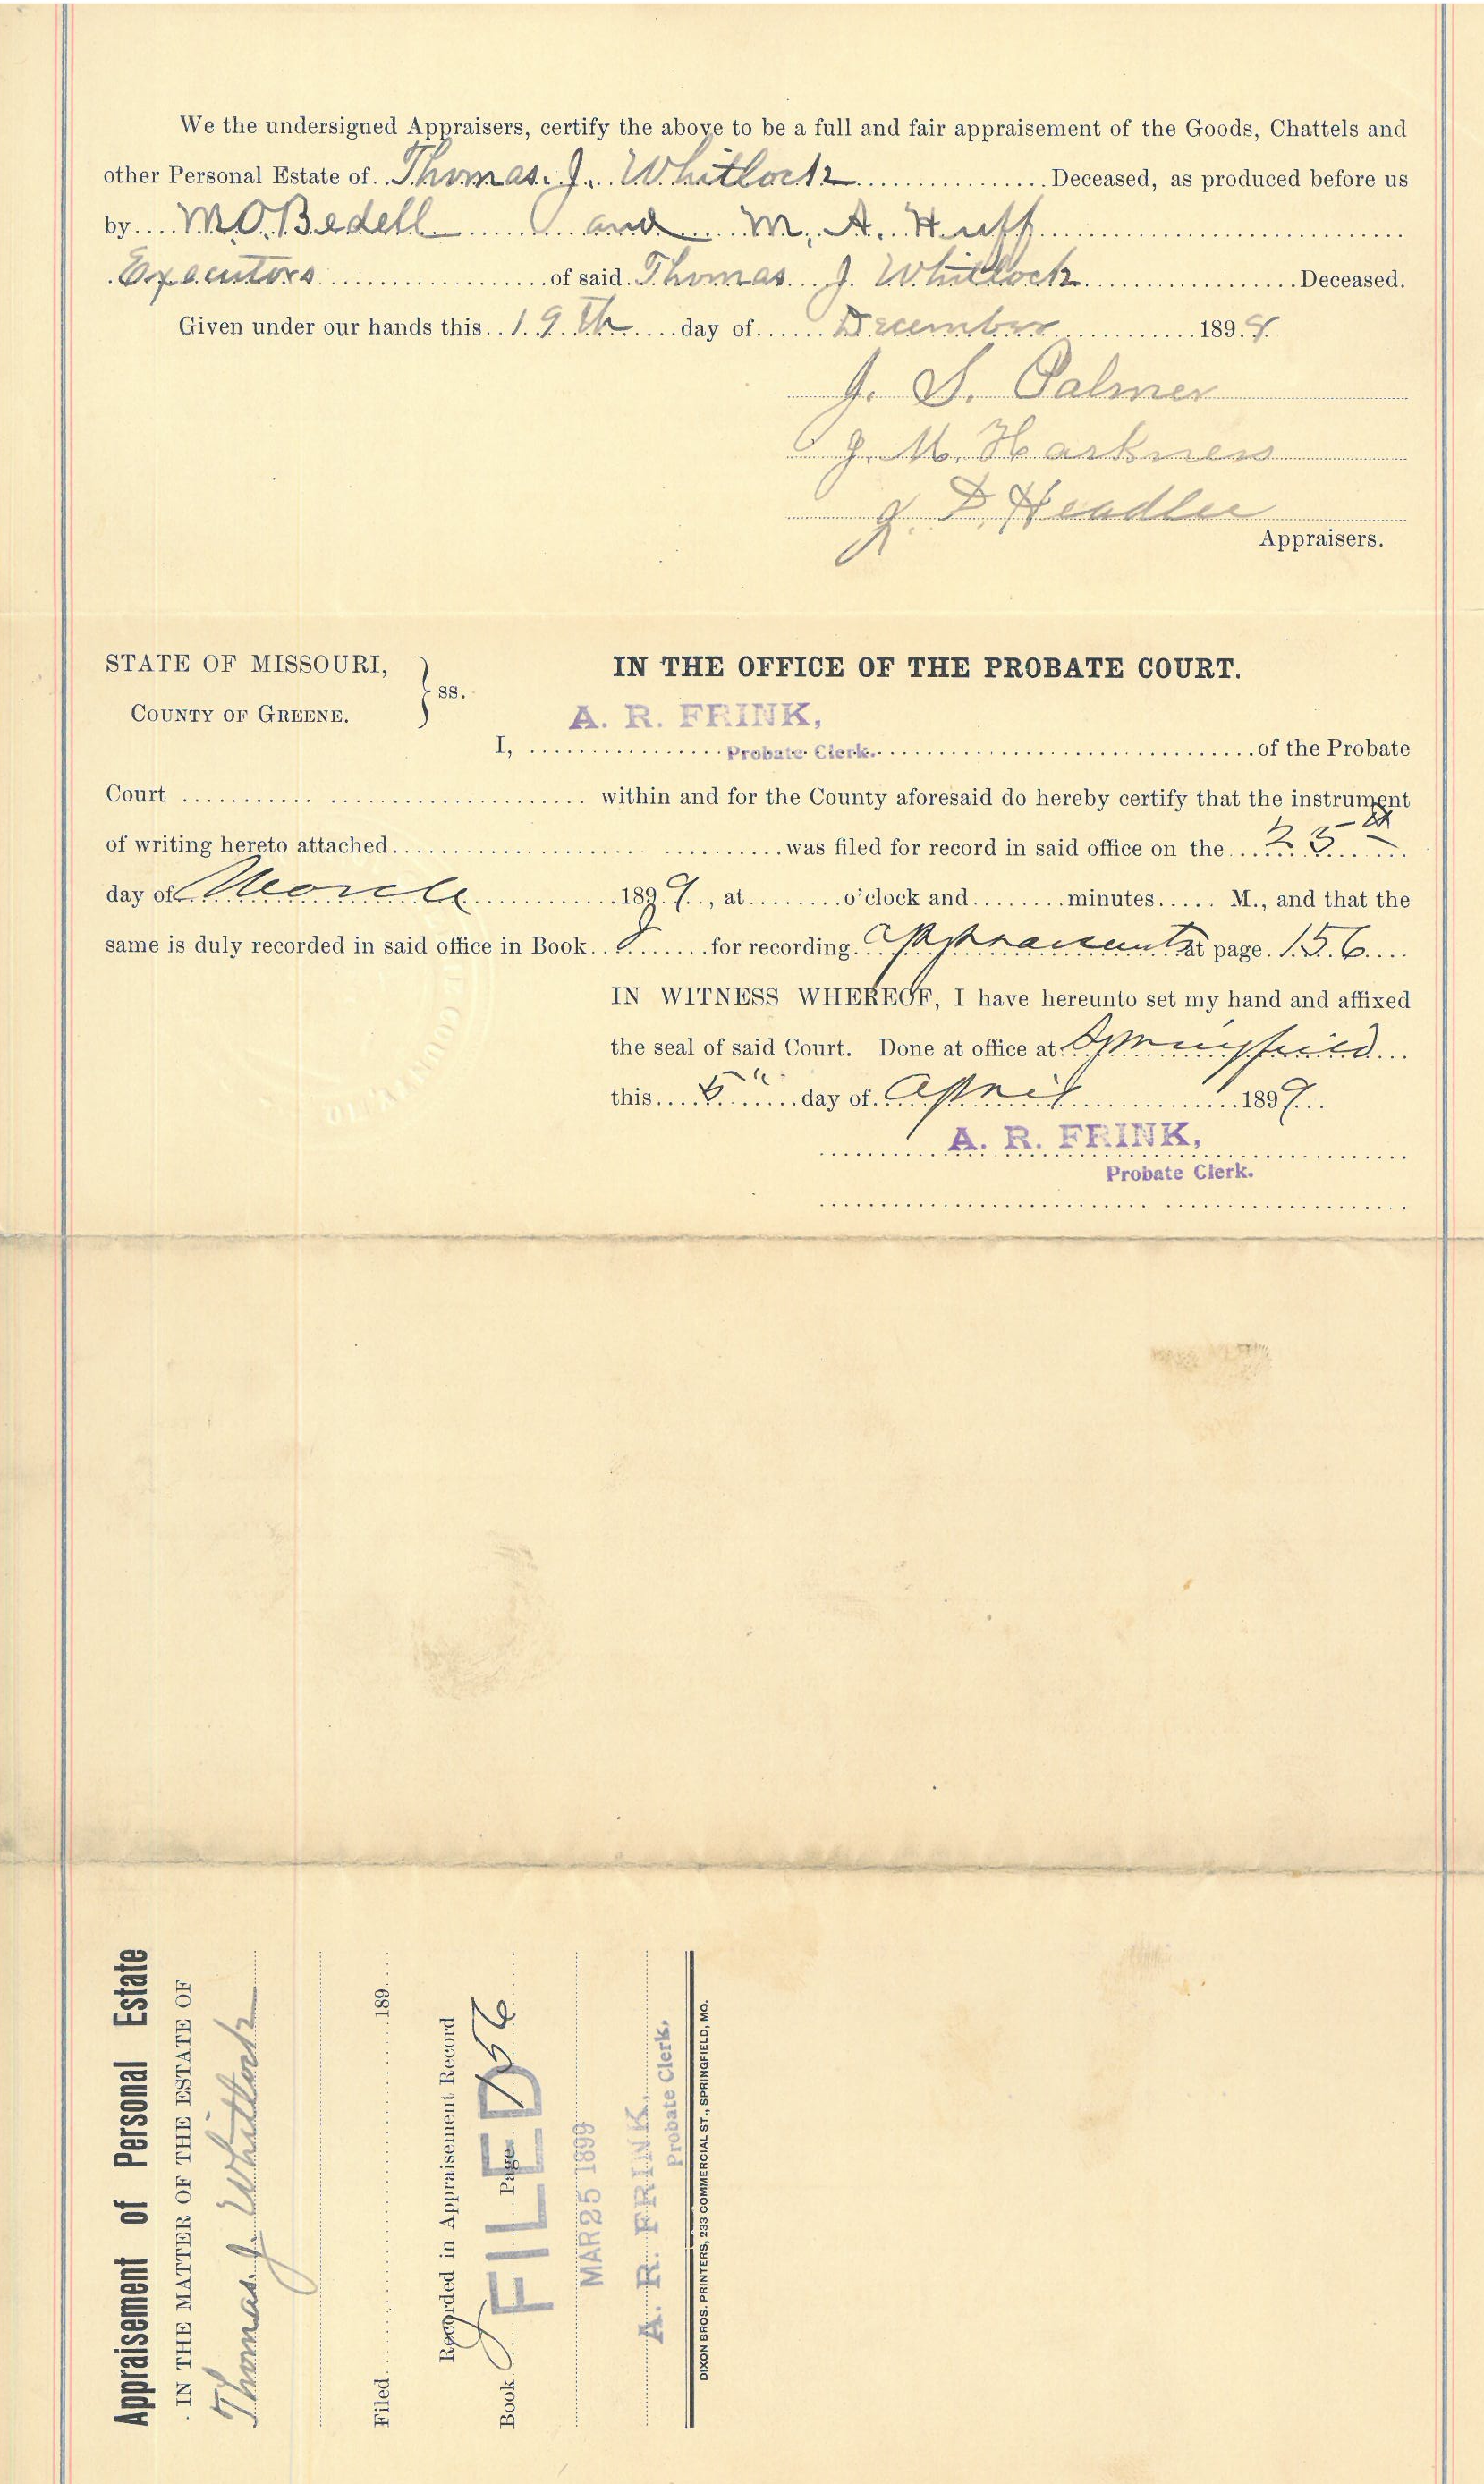 We the undersigned Appraisers, certify the above to be a full and fair appraisement of the Goods, Chattels and
other Personal Estate of Thomas. J. Whitlock Deceased, as produced before us
by M.O. Bedell and M. A. Huff
Executors of said Thomas J. Whitlock Deceased.
Given under our hands this 19th day of December 1898
J. S. Palmer
J. M. Harkness
J. D. Headlee
Appraisers.
STATE OF MISSOURI,
COUNTY OF GREENE.
} ss.
IN THE OFFICE OF THE PROBATE COURT.
A. R. FRINK,
I, Probate Clerk. of the Probate
Court within and for the County aforesaid do hereby certify that the instrument
of writing hereto attached was filed for record in said office on the 25th
day of March 1899, at o'clock and minutes M., and that the
same is duly recorded in said office in Book J for recording at page 156
IN WITNESS WHEREOF, I have hereunto set my hand and affixed
the seal of said Court. Done at office at Springfield
this 5" day of April 1899
A. R. FRINK,
Probate Clerk.
Appraisement of Personal Estate
IN THE MATTER OF THE ESTATE OF
Thomas. J. Whitlock
Filed 189
Recorded in Appraisement Record
Book J Page 156
FILED
MAR 25 1899
A. R. FRINK,
Probate Clerk.
DIXON BROS. PRINTERS, 233 COMMERCIAL ST., SPRINGFIELD, MO.